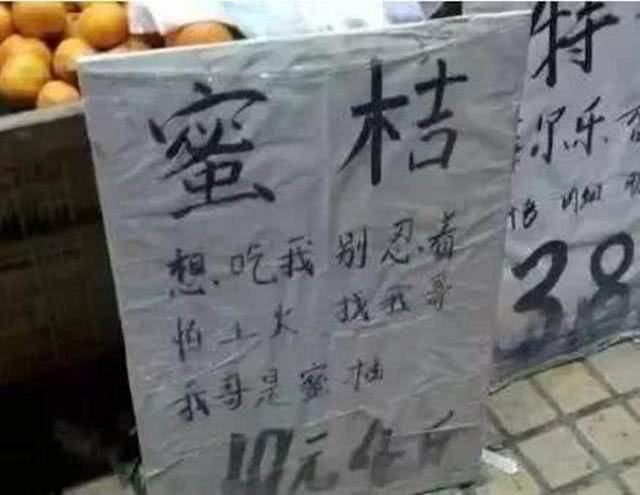 蜜桔
想吃我 别忍着
怕上火 找我哥
我哥是蜜柚
10元4斤
特
乐
38